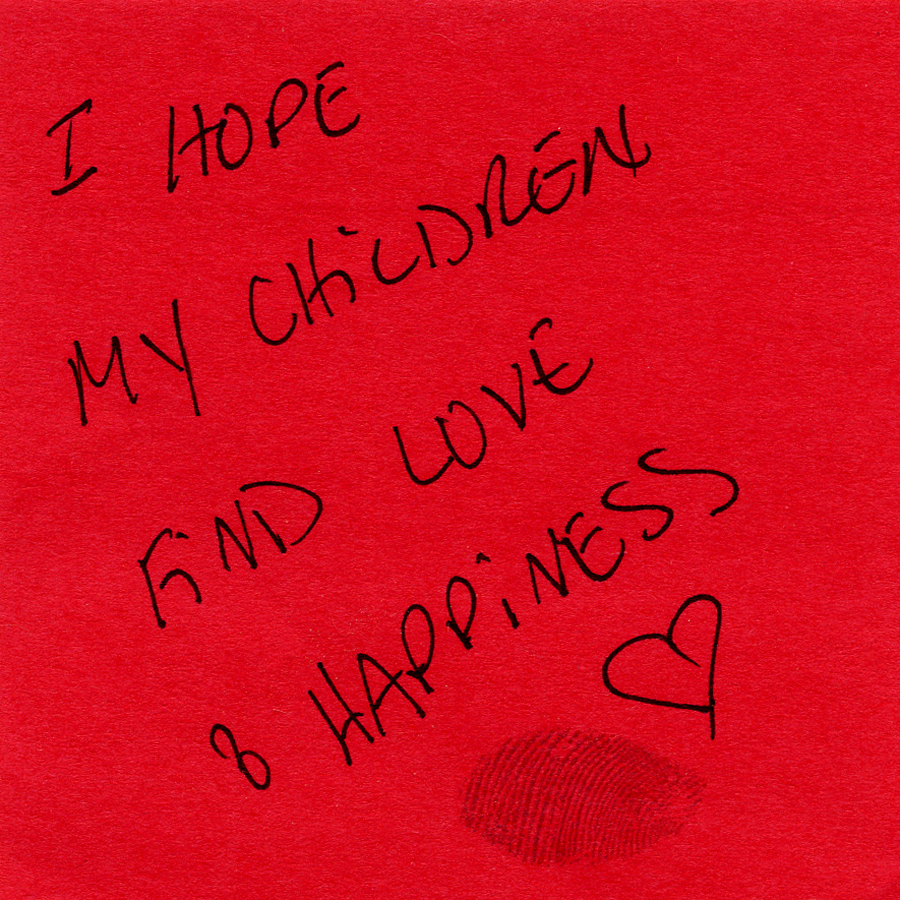 I HOPE
MY CHiLDREN
FiND LOVE
& HAPPiNESS